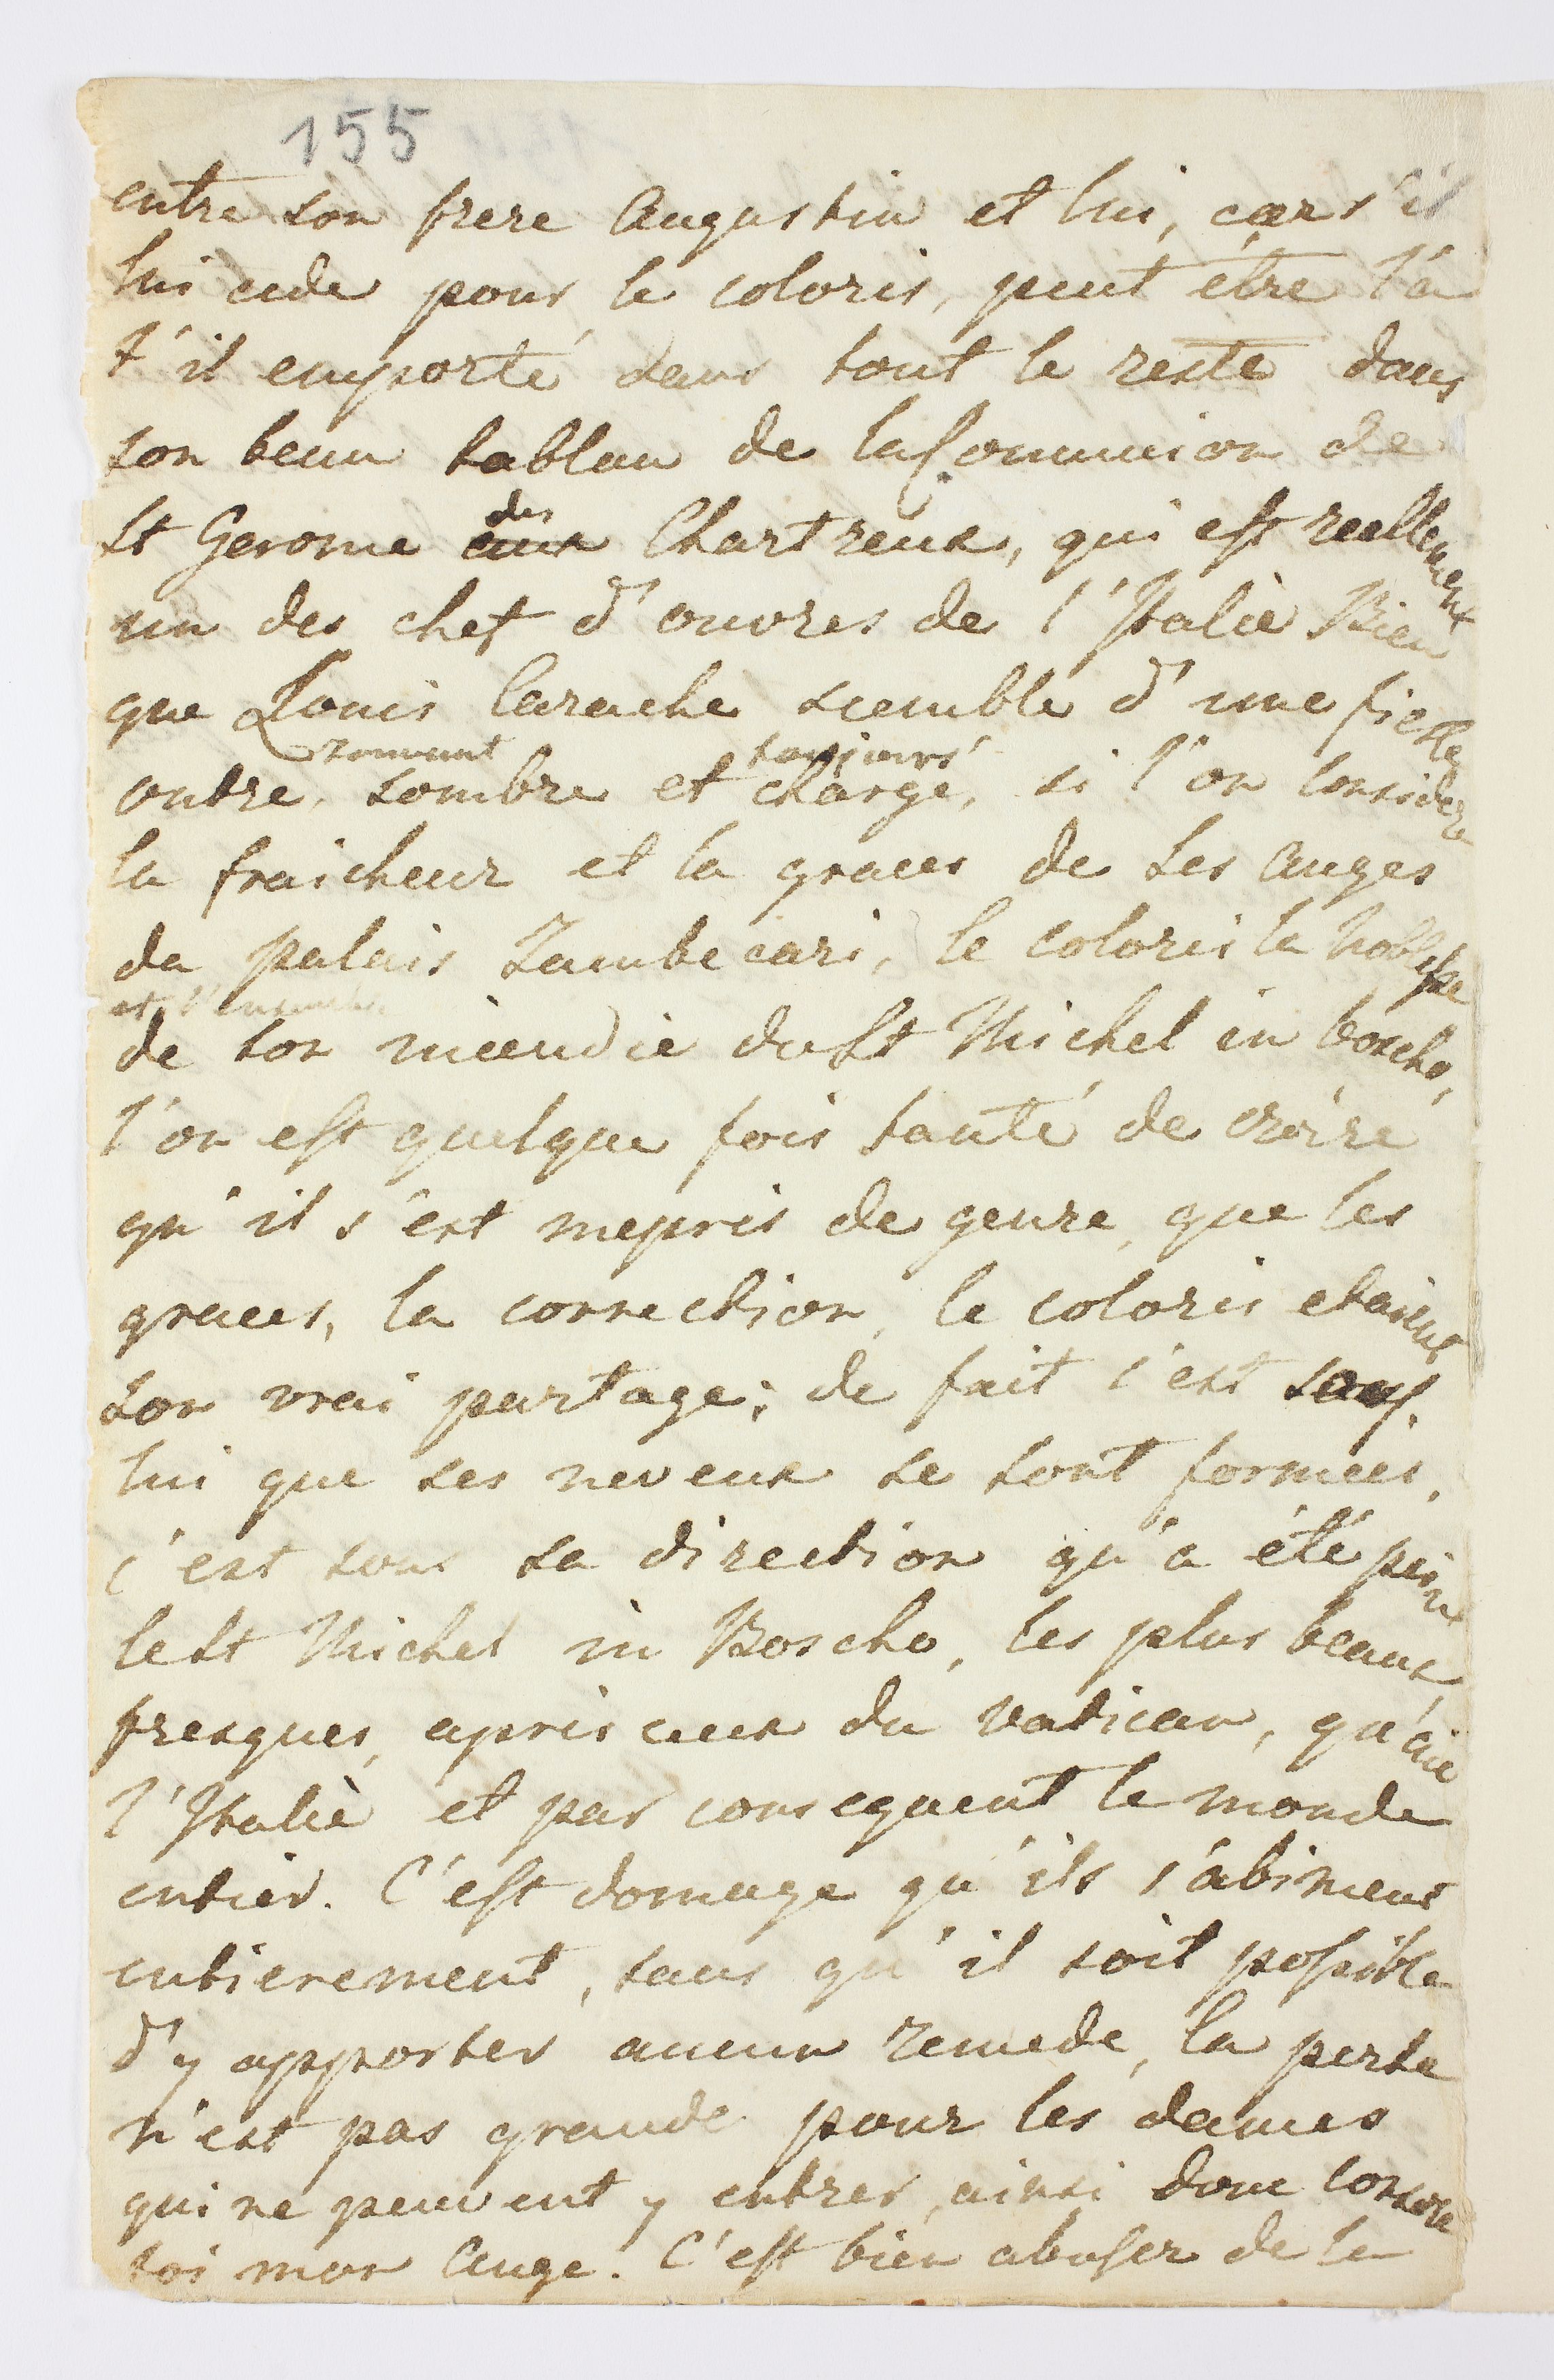 155
entre son frere Augustin et lui, car s'il
lui cede pour le coloris, peut être l'a
t'il emporté dans tout le reste dans
son beau tablau de la Communion de
St Gerome aux des Chartreux, qui est reellement
un des chef d'ouvres de l'Italiè Bien
que Louis Carache semble d'une fierte
souvent toujours
outre, sombre et chargé, si l'on considere
la fraicheur et la graces de ses Anges
du palais Zambecari, le coloris la noblesse
et l'ensemble
de son incendie du St Michel in boscho,
l'on est quelque fois tanté de croire
qu'il s'est mepris de genre, que les
graces, la correction, le coloris etaient
son vrai partage; de fait c'est sous
lui que ses neveux se sont formées,
c'est sous sa direction qu'a été peint
le St Michel in Boscho, les plus beaux
fresques, après ceux du vatican, qu'aie
l'Italiè et par consequent le monde
entier. C'est domage qu'ils s'abiment
entierement, sans qu'il soit possible
d'y apporter aucun remede, la perte
n'est pas grande pour les dames
qui ne peuvent y entrer, ainsi donc console
toi mon Ange. C'est bien abuser de la